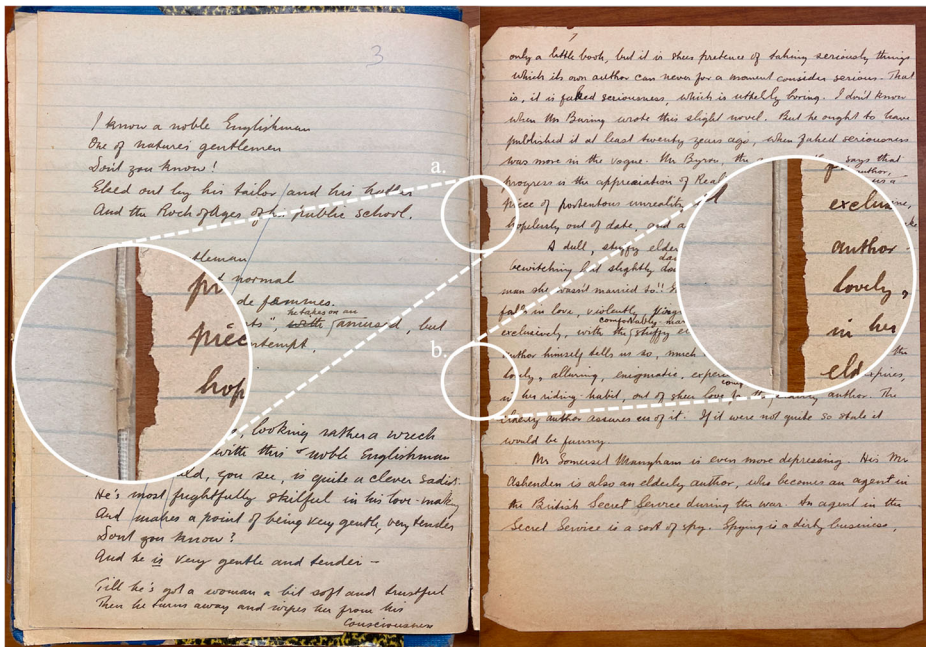 3
I know a noble Englishman
One of nature's gentlemen
Don't you know!
Eked out by his tailor and his hatter
And the Rock of Ages of his public school.
tleman
normal
de femmes.
he takes on an
amused, but
ntempt.
looking rather a wreck
with this noble Englishman
ld, you see, is quite a clever sadist
He's most frightfully skilful in his love-making
And makes a point of being very gentle, very tender
Don't you know?
And he is very gentle and tender –
Till he's got a woman a bit soft and trustful
Then he turns away and wipes her from his
consciousness
a.
b.
piec
hop
only a little book, but it is sheer pretence of taking seriously things
which its own author can never for a moment consider serious. That
is, it is faked seriousness, which is utterly boring. I don't know
when Mr Baring wrote this slight novel. But he ought to have
published it at least twenty years ago, when faked seriousness
was more in the vogue. Mr Byron, the says that
progress is the appreciation of Real
piece of portentous unreality
hopelessly out of date, and a
A dull, stuffy elde
bewitching but slightly
man she wasn't married to!!
falls in love, violently
comfortably
exclusively, with the stuffy e
author himself tells us so, much the
lovely, alluring, enigmatic, exper
in her riding-habit, out of sheer love author. The
elderly author assures us of it. If it were not quite so stale it
would be funny.
Mr Somerset Maugham is even more depressing. His Mr
Ashenden is also an elderly author, who becomes an agent in
the British Secret Service during the war. An agent in the
Secret Service is a sort of spy. Spying is a dirty business,
author
lovely,
in her
eld